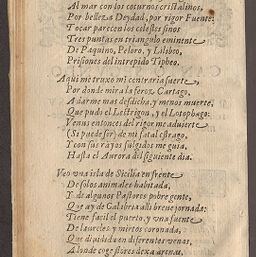 Al mar con los coturnos cristalinos,
Por belleza Deydad, por rigor Fuente:
Tocar parecen los celestes sinos
Tres puntas en triangulo eminente
De Paquino, Peloro, y Lilibeo,
Prisiones del intrepido Tipheo.
Aqui me truxo mi contraria suerte,
Por donde mira la feroz Cartago,
A darme mas desdicha, y menos muerte,
Que pudo el Lestrigon, y el Lotophago:
Venus entonces del rigor me aduierte
(Si puede ser) de mi fatal estrago,
Y con sus rayos fulgidos me guia,
Hasta el Aurora del siguiente dia.
Veo vna isla de Sicilia en frente
De solos animales habitada,
Y de algunos Pastores pobre gente,
Que ay de Calabria alli breue jornada:
Tiene facil el puerto, y vna fuente
De laureles y mirtos coronada,
Que diuidida en diferentes venas,
A donde coge flores dexa arenas,